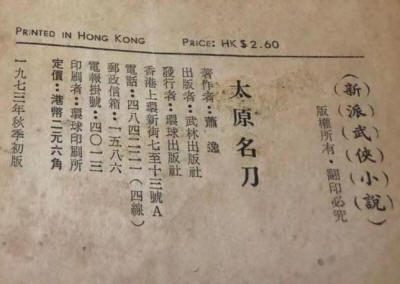 PRINTED IN HONG KONG
PRICE: HK$2.60
(新派武俠小說)
版權所有·翻印必究
太原名刀
著作者：蕭逸
出版者：武林出版社
發行者：環球出版社
香港上環新街七至十三號A
電話：四八四二二一一（四線）
郵政信箱：一五八六
電報掛號：四〇一三
印刷者：環球印刷所
定價：港幣二元六角
一九七三年秋季初版